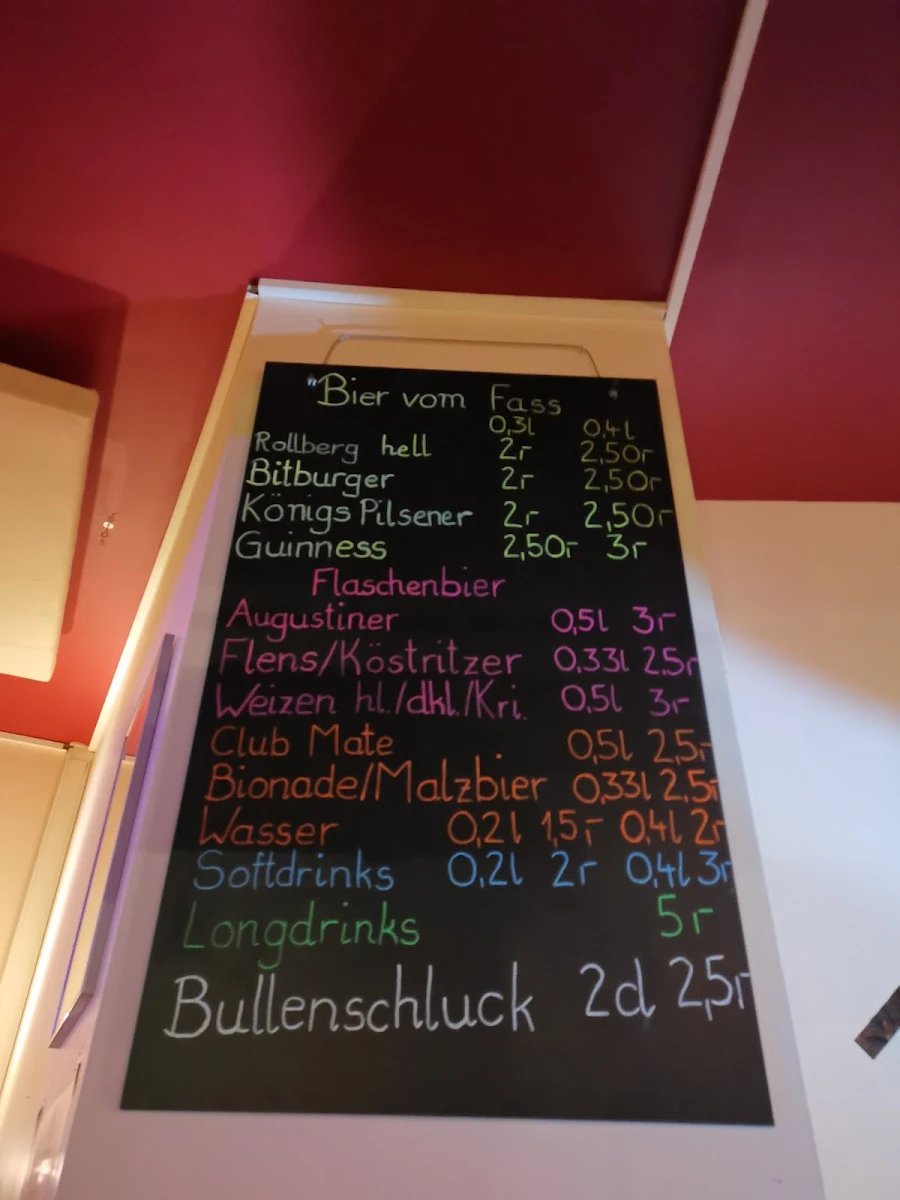 "Bier vom Fass"
0,3l 0,4l
Rollberg hell 2,- 2,50,-
Bitburger 2,- 2,50,-
Königs Pilsener 2,- 2,50,-
Guinness 2,50,- 3,-
Flaschenbier
Augustiner 0,5l 3,-
Flens/Köstritzer 0,33l 2,5,-
Weizen hl./dkl./Kri. 0,5l 3,-
Club Mate 0,5l 2,5,-
Bionade/Malzbier 0,33l 2,5,-
Wasser 0,2l 1,5,- 0,4l 2,-
Softdrinks 0,2l 2,- 0,4l 3,-
Longdrinks 5,-
Bullenschluck 2cl 2,5,-